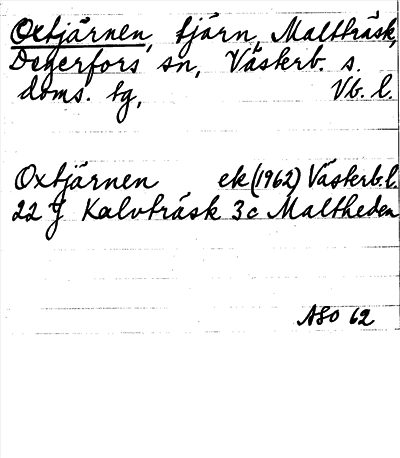 Oxtjärnen, tjärn, Maltträsk,
Degerfors sn, Västerb. s.
doms. tg, Vb. l.
Oxtjärnen ek (1962) Västerb. l.
22 J Kalvträsk 3c Maltheden
ASO 62